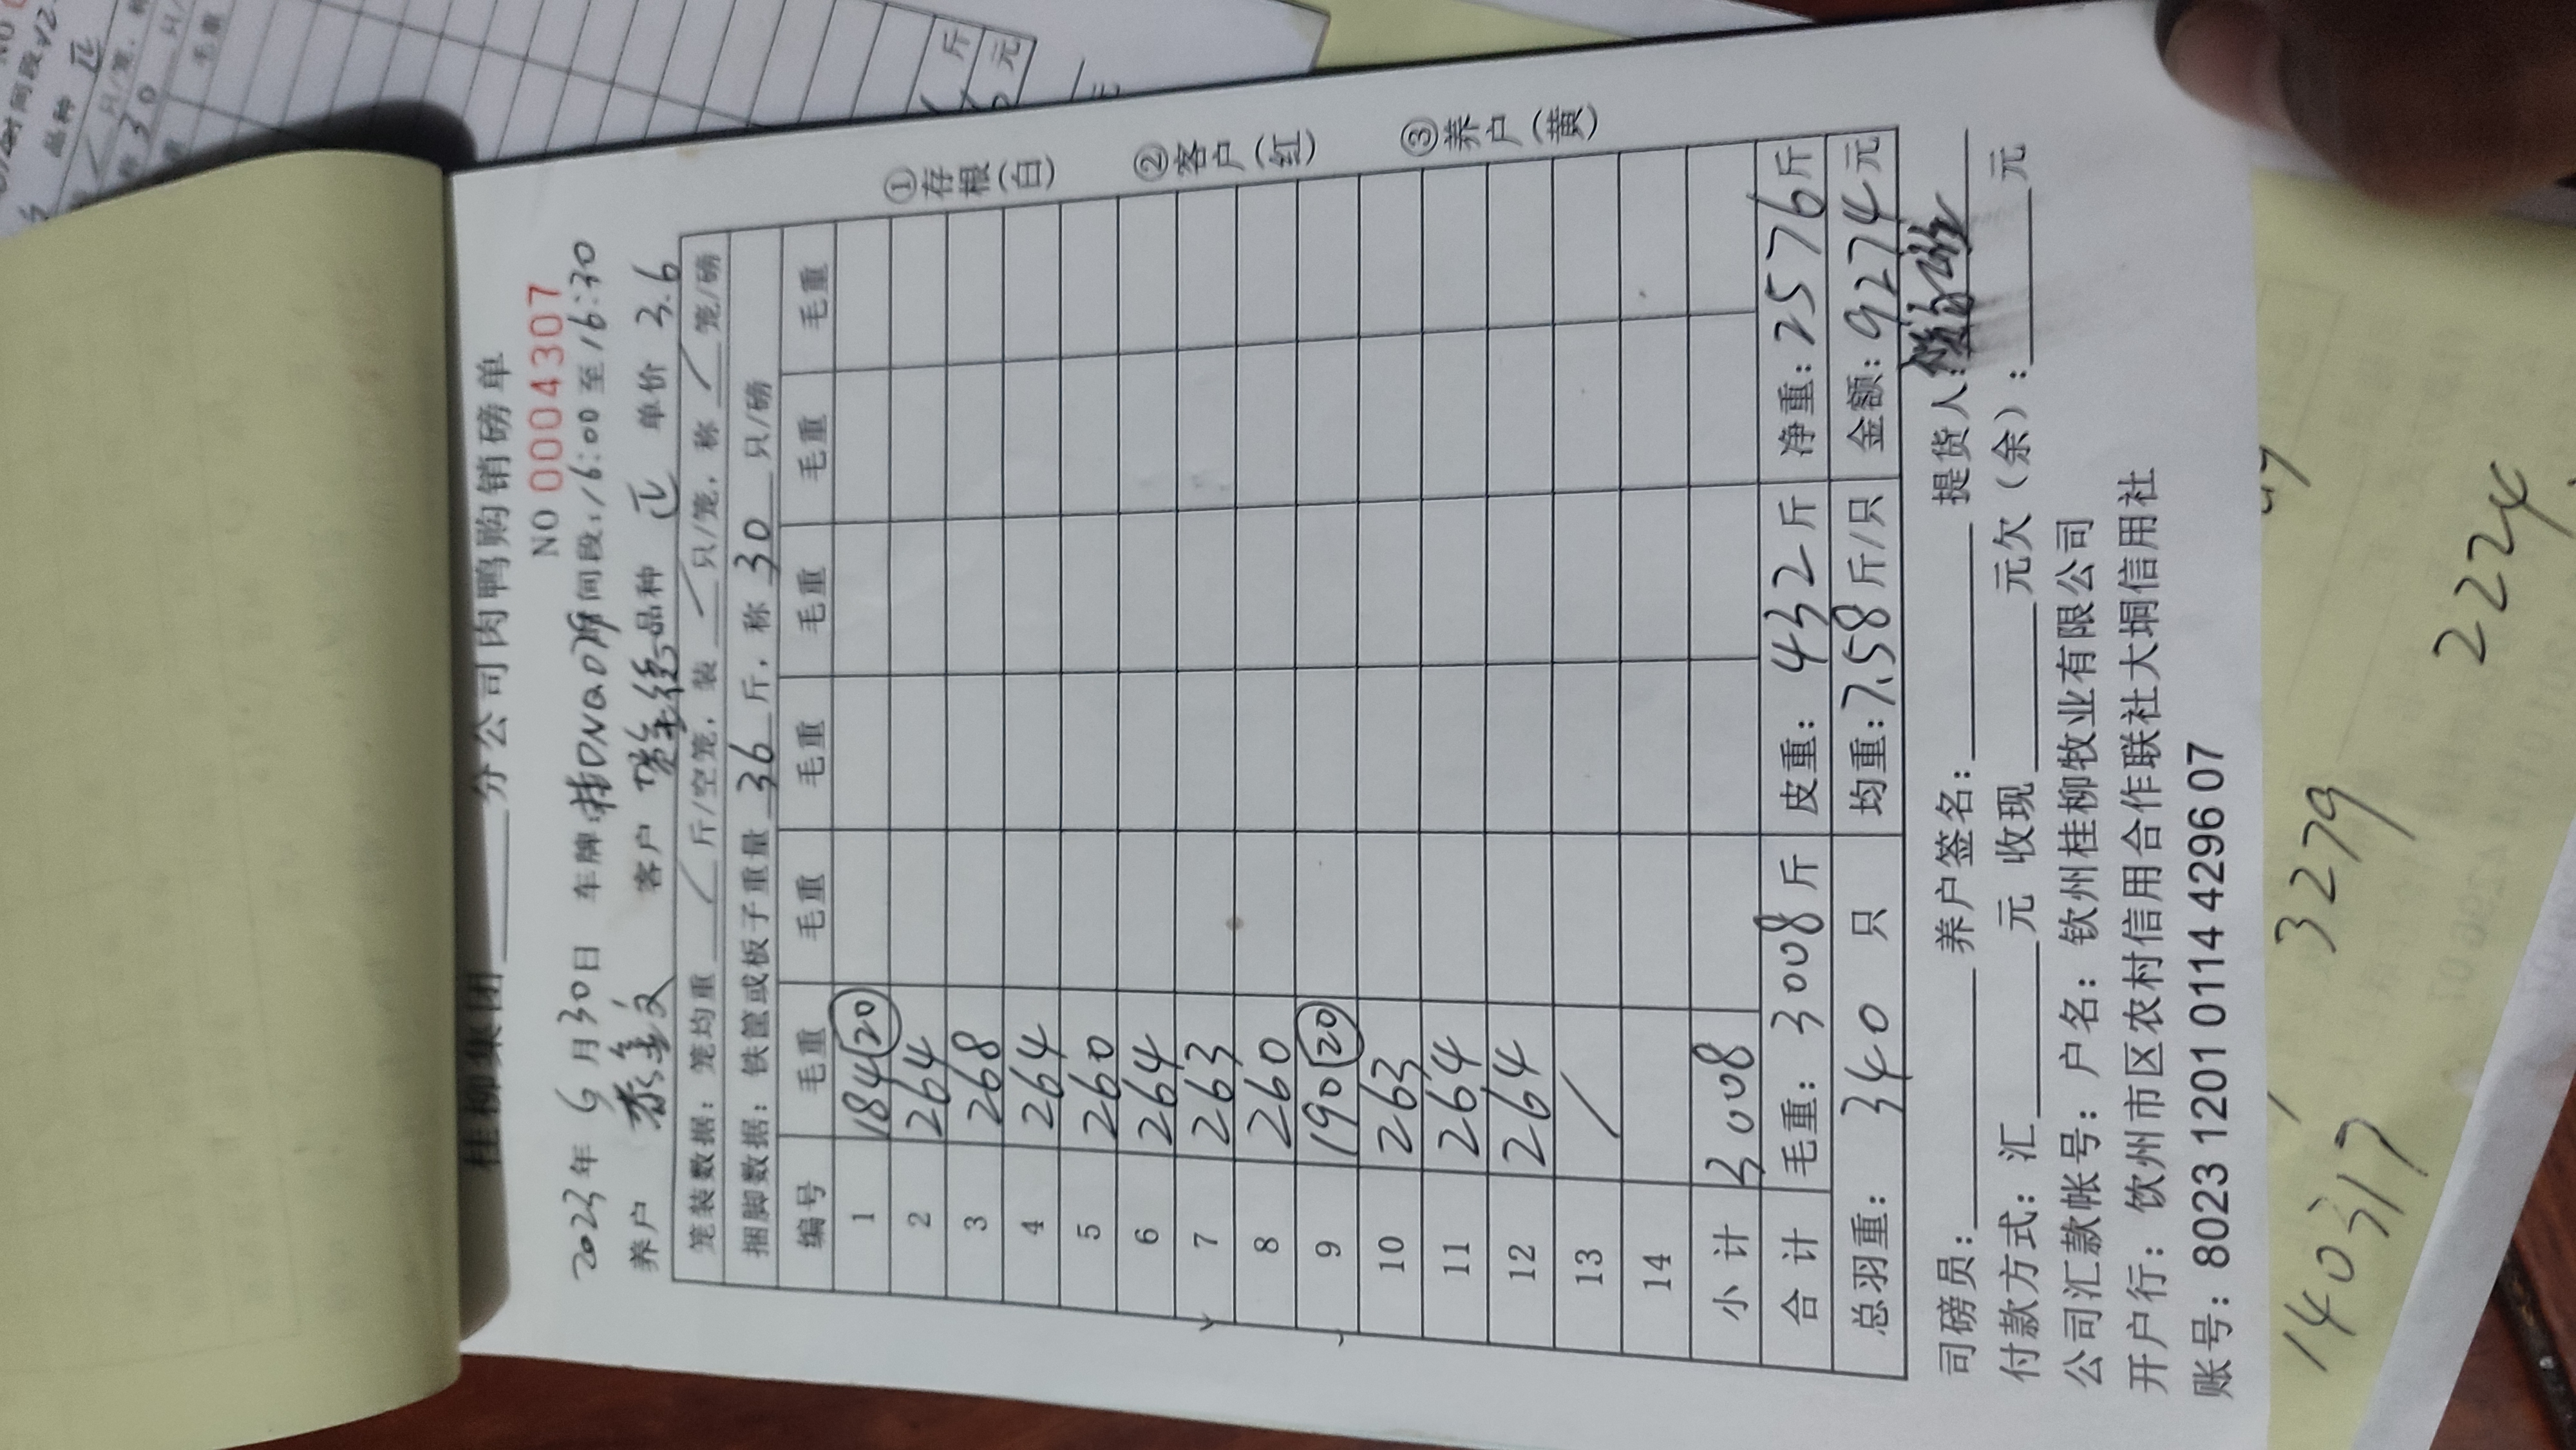 桂柳集团 分公司肉鸭购销磅单
NO 0004307
2023年6月30日 车牌: 时间段:16:00至16:30
养户 客户 品种 正 单价 3.6
笼装数据: 笼均重 / 斤/空笼, 装 / 只/笼, 称 / 笼/磅
捆脚数据: 铁筐或板子重量 36 斤, 称 30 只/磅
编号 毛重 毛重 毛重 毛重 毛重 毛重
1 184 20
2 264
3 268
4 264
5 260
6 264
7 263
8 260
9 190 20
10 263
11 264
12 264
13 /
14
小计 3008
合计 毛重: 3008斤 皮重: 432斤 净重: 2576斤
总羽重: 340 只 均重: 7.58斤/只 金额: 9274元
司磅员: 养户签名: 提货人:
付款方式: 汇 元 收现 元欠(余): 元
公司汇款帐号: 户名: 钦州桂柳牧业有限公司
开户行: 钦州市区农村信用合作联社大垌信用社
账号: 8023 1201 0114 4296 07
①存根(白) ②客户(红) ③养户(黄)
140317
3279
2224
时间段
品种 正
只/笼,
30 只/
毛重
斤
元